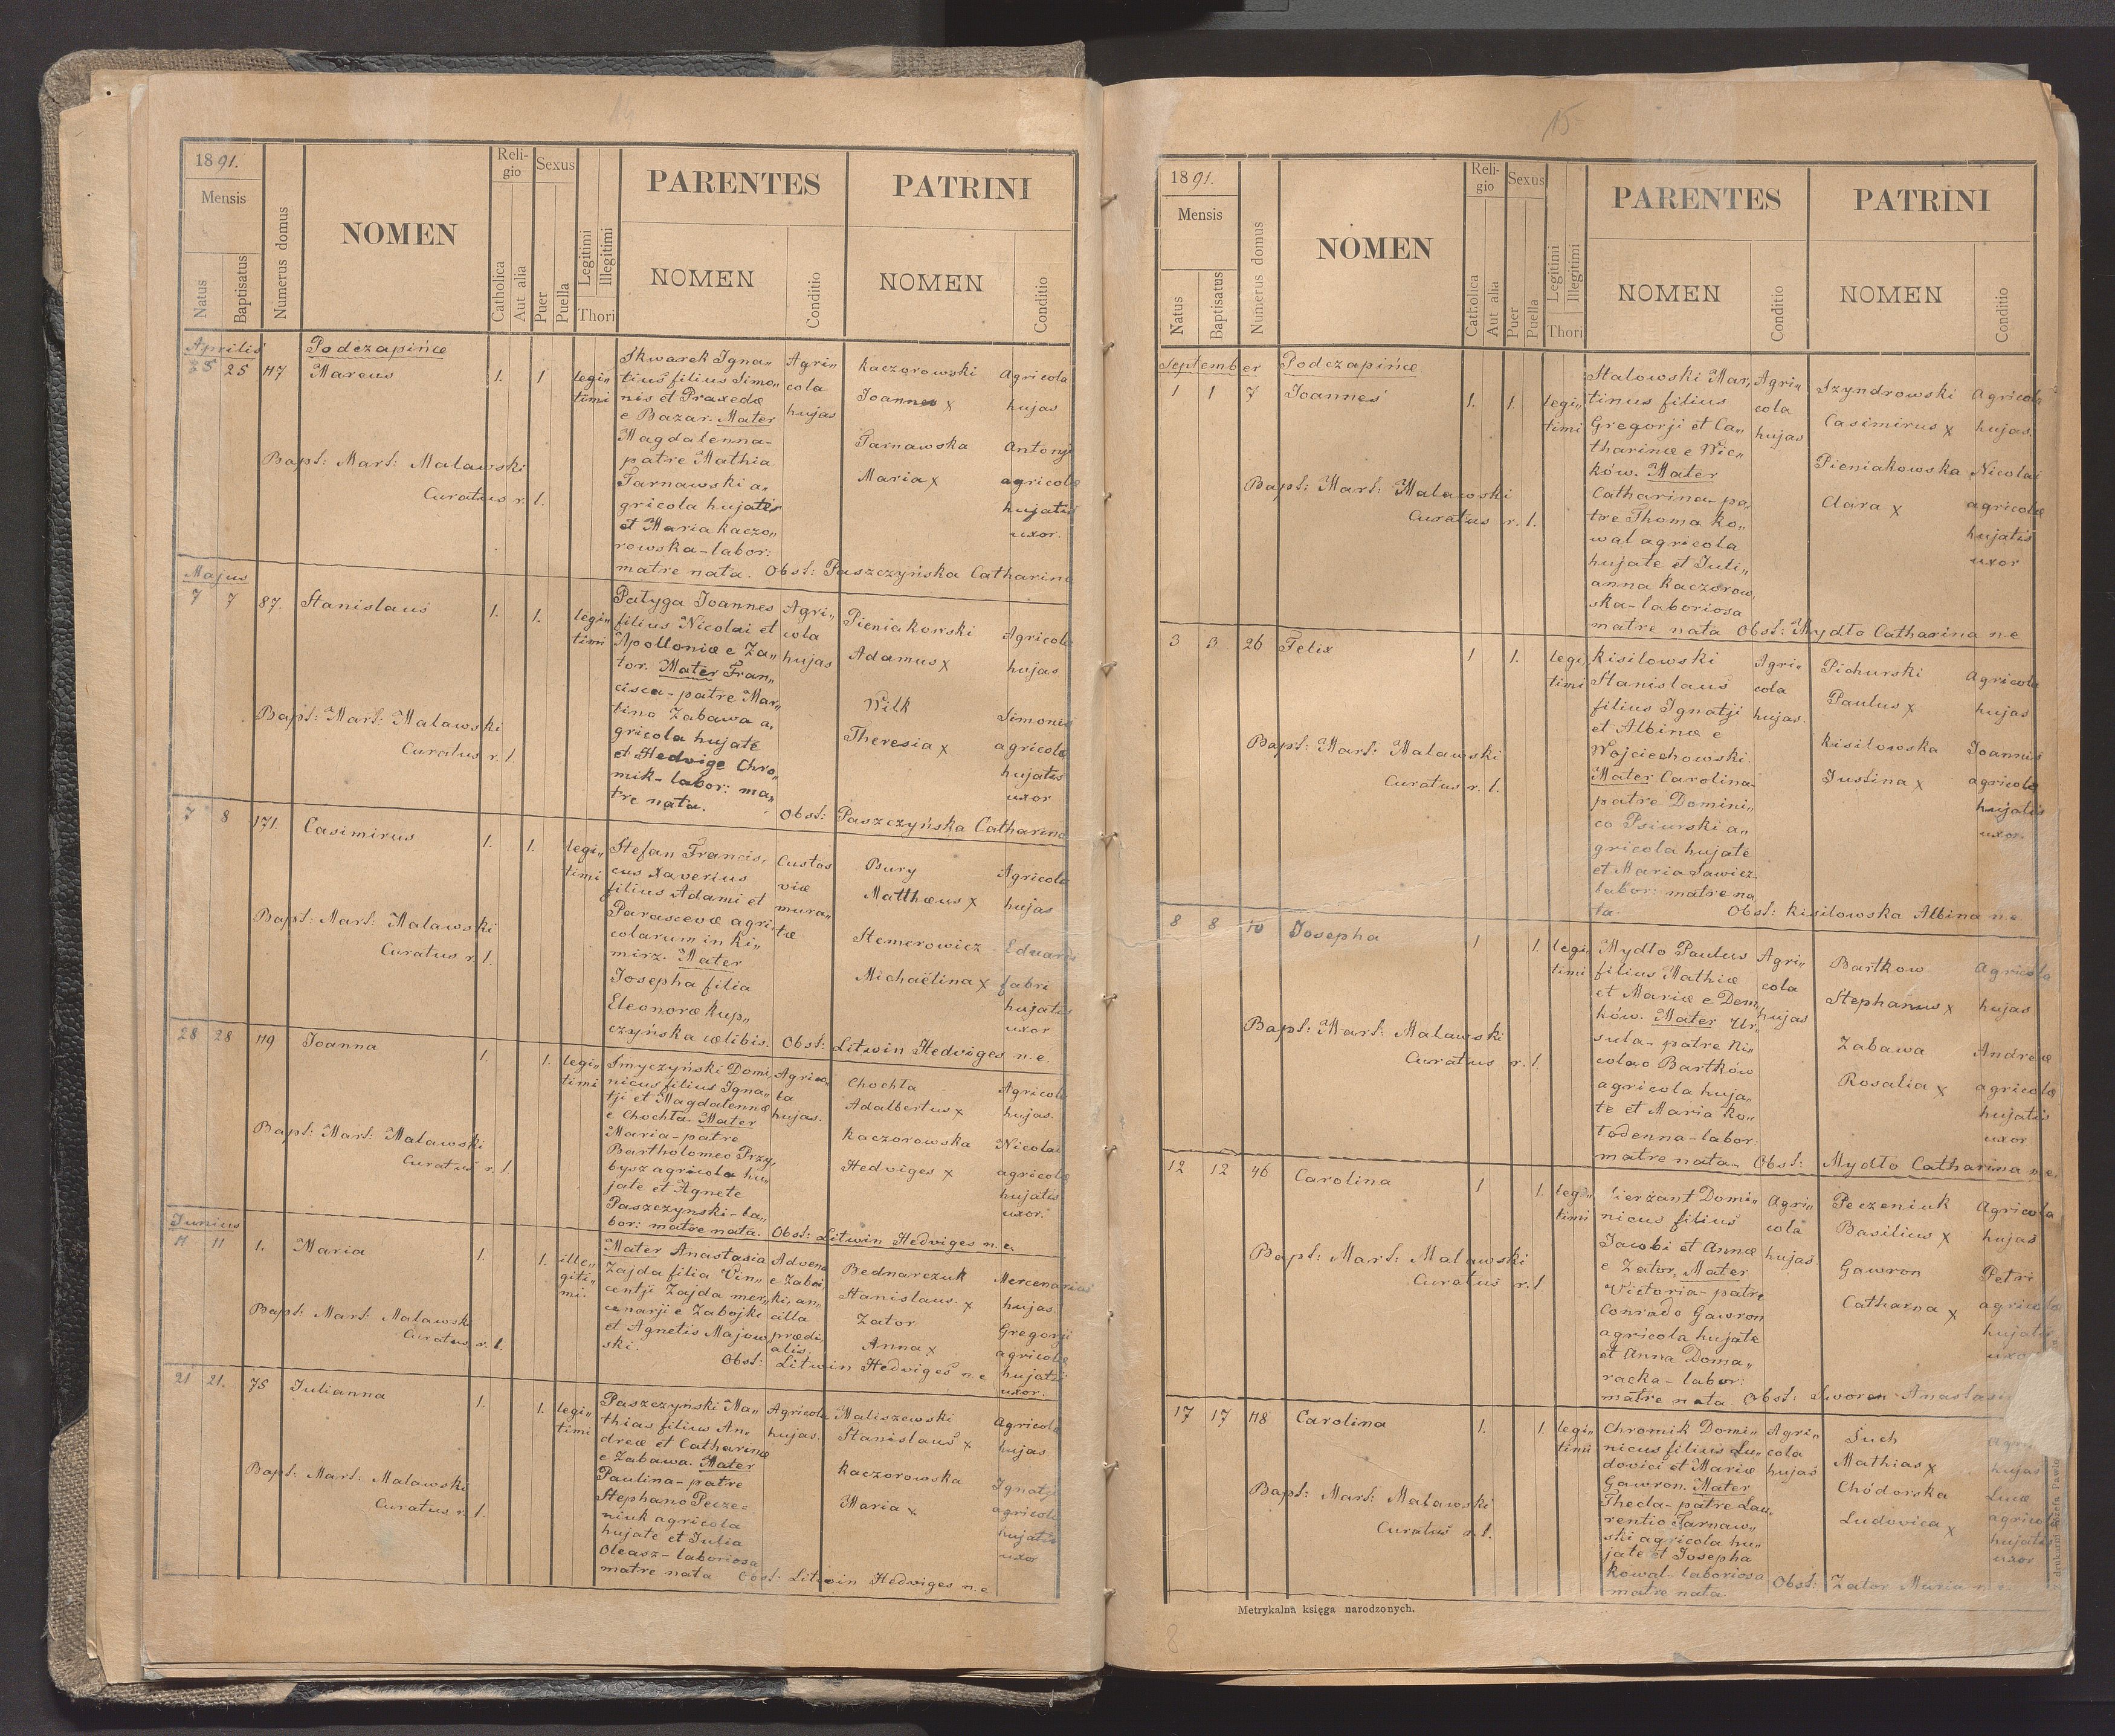 14
1891.
Mensis
Natus
Baptisatus
Numerus domus
NOMEN
Reli-
gio
Catholica
Aut alia
Sexus
Puer
Puella
Legitimi
Illegitimi
Thori
PARENTES
NOMEN
Conditio
PATRINI
NOMEN
Conditio
Aprilis Podczapińce
25 25 117 Marcus 1. 1 legi„
timi
Skwarek Igna„
tius filius Simo„
nis et Praxedæ
e Bazar. Mater
Magdalenna-
patre Mathia
Tarnawski a„
gricola hujate
et Maria Kaczo„
rowska-labor:
matre nata. Obst: Paszczyńska Catharina
Agri„
cola
hujas
Kaczorowski
Joannes x
Tarnawska
Maria x
Agricola
hujas
Antonji
agricolæ
hujatis
uxor.
Bapt: Mart: Malawski
Curatus r. l.
Majus
7 7 87. Stanislaus 1. 1. legi„
timi
Patyga Joannes
filius Nicolai et
Apolloniæ e Za„
tor. Mater Fran„
cisca-patre Mar„
tino Zabawa a„
gricola hujate
et Hedvige Chro„
mik-labor: ma„
tre nata. Obst: Paszczyńska Catharina
Agri„
cola
hujas
Pieniakowski
Adamus x
Wilk
Theresia x
Agricola
hujas
Simonis
agricolæ
hujatis
uxor
Bapt: Mart: Malawski
Curatus r. l.
7 8 171. Casimirus 1. 1. legi„
timi
Stefan Francis„
cus Xaverius
filius Adami et
Parascevæ agri„
colarum in Ki„
mirz. Mater
Josepha filia
Eleonoræ Kup„
czyńska cælibis. Obst: Litwin Hedviges n. e.
Custos
viæ
mura„
tæ
Bury
Matthæus x
Stemerowicz
Michaëlina x
Agricola
hujas
Eduardi
fabri
hujatis
uxor
Bapt: Mart: Malawski
Curatus r. l.
28 28 119 Joanna 1. 1. legi„
timi
Smyczyński Domi„
nicus filius Igna„
tji et Magdalennæ
e Chochła. Mater
Maria-patre
Bartholomeo Przy„
bysz agricola hu„
jate et Agnete
Paszczynski-la„
bor: matre nata. Obst: Litwin Hedviges n. e.
Agrico„
la
hujas.
Chochła
Adalbertus x
Kaczorowska
Hedviges x
Agricola
hujas.
Nicolai
agricolæ
hujatis
uxor.
Bapt: Mart: Malawski
Curatus r. l.
Junius
11 11 1. Maria 1. 1. ille„
giti„
mi.
Mater Anastasia
Zajda filia Vin„
centji Zajda mer„
cenarji e Zabojki
et Agnetis Majow„
ski.
Obst: Litwin Hedviges n. e.
Advena
e Zaboj„
ki, an„
cilla
prædi„
alis.
Bednarczuk
Stanislaus. x
Zator
Anna x
Mercenarius
hujas.
Gregorji
agricolæ
hujatis
uxor.
Bapt: Mart: Malawski
Curatus r. l.
21 21. 75 Julianna 1. 1. legi„
timi
Paszczynski Ma„
thias filius An„
dreæ et Catharinæ
e Zabawa. Mater
Paulina-patre
Stephano Pecze=
niuk agricola
hujate et Julia
Oleasz-laboriosa
matre nata Obst: Litwin Hedviges n. e
Agricola
hujas.
Maliszewski
Stanislaus x
Kaczorowska
Maria x
Agricola
hujas
Ignatji
agricolæ
hujatis
uxor
Bapt: Mart: Malawski
Curatus r. l.
15
1891.
Mensis
Natus
Baptisatus
Numerus domus
NOMEN
Reli-
gio
Catholica
Aut alia
Sexus
Puer
Puella
Legitimi
Illegitimi
Thori
PARENTES
NOMEN
Conditio
PATRINI
NOMEN
Conditio
September Podczapińce
1 1 7 Joannes 1. 1. legi„
timi
Stalowski Mar„
tinus filius
Gregorji et Ca„
tharinæ e Wie„
ków. Mater
Catharina-pa„
tre Thoma Ko„
wal agricola
hujate et Juli„
anna Kaczorow„
ska-laboriosa
matre nata Obst: Mydło Catharina n. e
Agri„
cola
hujas
Szyndrowski
Casimirus x
Pieniakowska
Clara x
Agricola
hujas.
Nicolai
agricolæ
hujatis
uxor
Bapt: Mart: Malawski
Curatus r. l.
3 3 26 Felix 1 1. legi„
timi
Kisilowski
Stanislaus
filius Ignatji
et Albinæ e
Wojciechowski.
Mater Carolina-
patre Domini„
co Psiurski a„
gricola hujate
et Maria Sawicz-
labor: matre na„
ta. Obst: Kisilowska Albina n. e.
Agri„
cola
hujas.
Pichurski
Paulus x
Kisilowska
Justina x
Agricola
hujas
Joannis
agricolæ
hujatis
uxor.
Bapt: Mart: Malawski
Curatus r. l.
8 8 10 Josepha 1 1. legi„
timi
Mydło Paulus
filius Mathiæ
et Mariæ e Dem„
ków. Mater Ur„
sula-patre Ni„
colao Bartków
agricola huja„
te et Maria Ko„
łodenna-labor:
matre nata- Obst: Mydło Catharina n. e.
Agri„
cola
hujas
Bartkow
Stephanus x
Zabawa
Rosalia x
Agricola
hujas
Andreæ
agricolæ
hujatis
uxor
Bapt: Mart: Malawski
Curatus r. l.
12 12 46 Carolina 1 1. legi„
timi
Sierżant Domi„
nicus filius
Jacobi et Annæ
e Zator, Mater
Victoria-patre
Conrado Gawron
agricola hujate
et Anna Doma„
racka-labor:
matre nata Obst: Sworen
Agri„
cola
hujas
Peczeniuk
Basilius x
Gawron
Catharna x
Agricola
hujas
Petri
agricolæ
hujatis
Bapt: Mart: Malawski
Curatus r. l.
17 17 118 Carolina 1. 1. legi„
timi
Chromik Domi„
nicus filius Lu„
dovici et Mariæ
Gawron. Mater
Thecla-patre Lau„
rentio Tarnaw„
ski agricola hu„
jate et Josepha
Kowal-laboriosa
matre nata- Obst: Zator Maria n. e.
Agri„
cola
hujas
Such
Mathias x
Chódorska
Ludovica x
hujas
Lucæ
agricolæ
hujatis
uxor
Bapt: Mart: Malawski
Curatus r. l.
Metrykalna księga narodzonych.
8